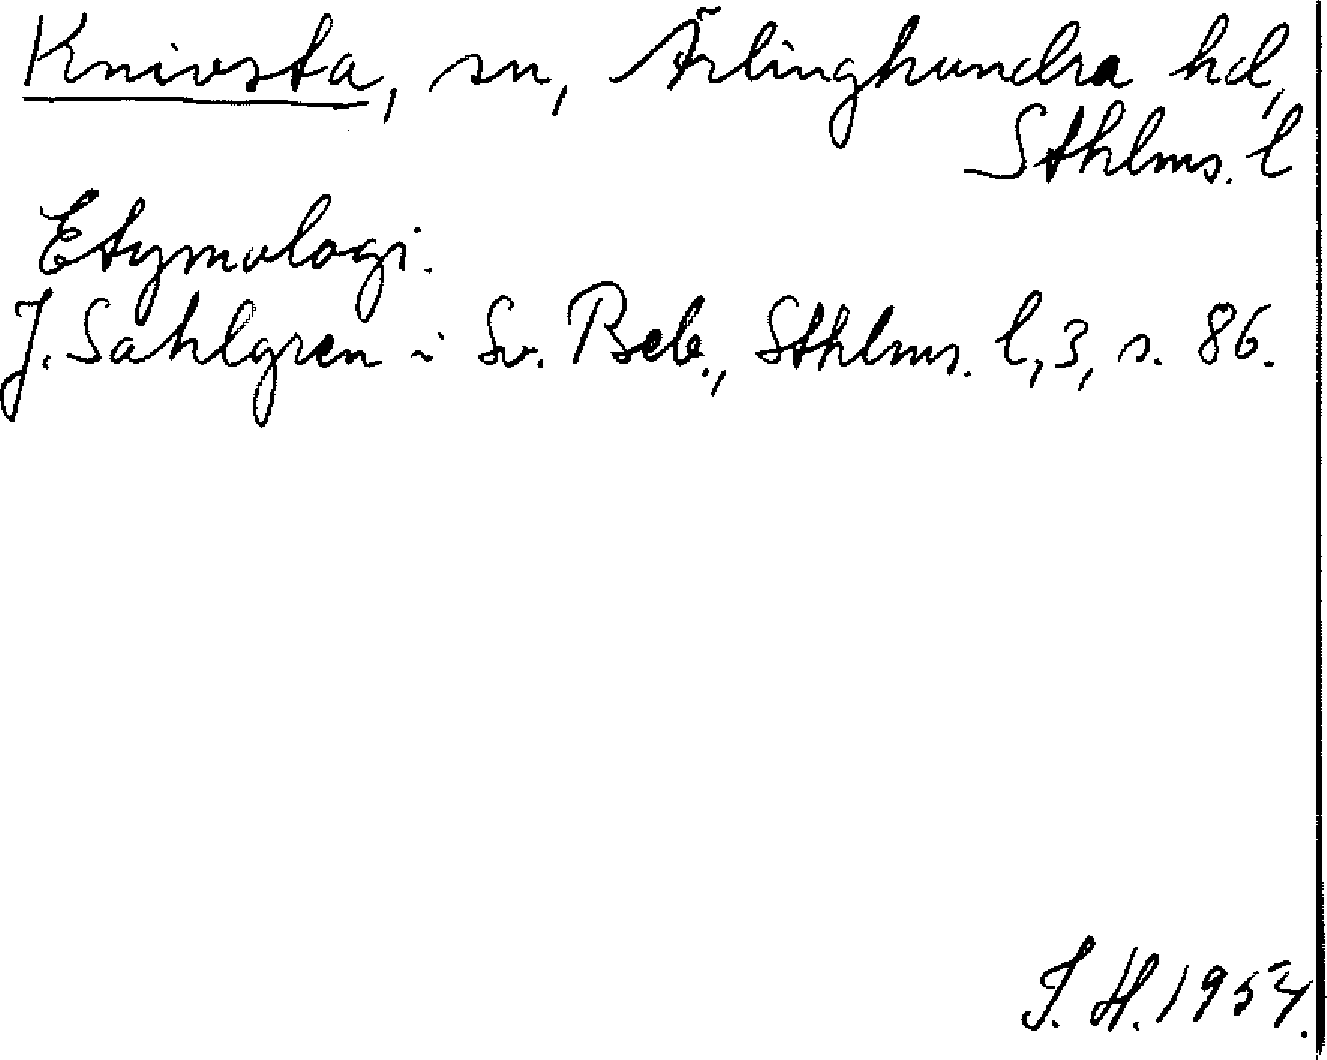 Knivsta, sn, Ärlinghundra hd,
Sthlms. l
Etymologi.
J. Sahlgren i Sv. Beb., Sthlms. l, 3, s. 86.
J. H. 1954.